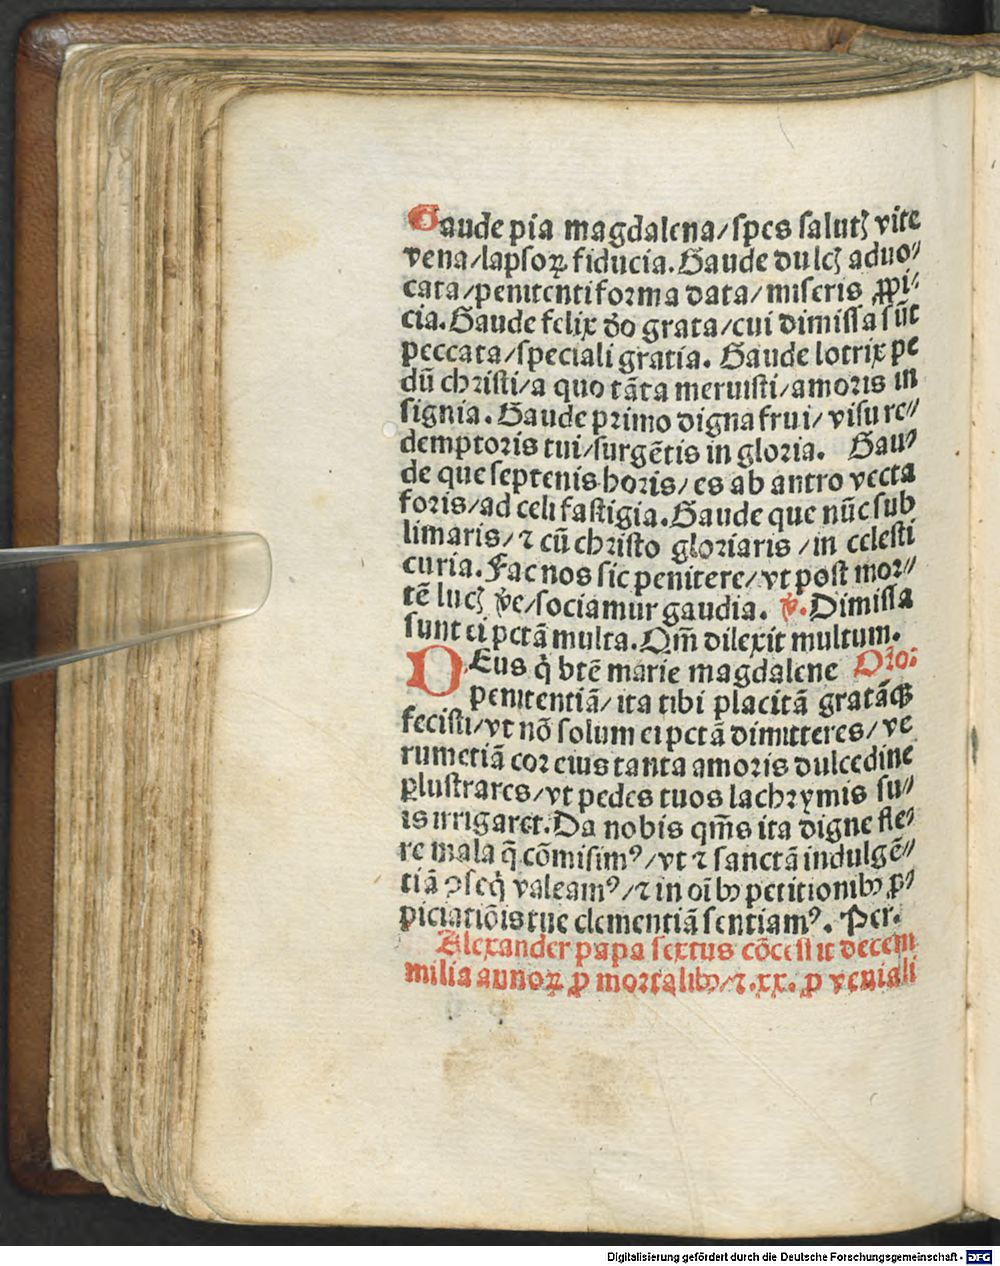 Gaude pia magdalena/spes salutꝫ vite
vena/lapsoꝝ fiducia. Gaude dulcꝫ aduo⸗
cata/penitenti forma data/miseris ꝓpi⸗
cia. Gaude felix do grata/cui dimissa sūt
peccata/speciali gratia. Gaude lotrix pe
dū christi/a quo tāta meruisti/amoris in
signia. Gaude primo digna frui/ visu re⸗
demptoris tui/surgētis in gloria. Gau⸗
de que septenis horis/es ab antro vecta
foris/ad celi fastigia. Gaude que nūc sub
limaris/⁊ cū christo gloriaris/in celesti
curia. Fac nos sic penitere/vt post mor⸗
tē lucꝫ ve/sociamur gaudia. ℣. Dimissa
sunt ei pctā multa. Qm̄ dilexit multum.
DEus q̇ btē marie magdalene Oro:
penitentiā/ita tibi placitā gratāqꝫ
fecisti/vt nō solum ei pctā dimitteres/ve
rumetiā cor eius tanta amoris dulcedine
ꝑlustrares/vt pedes tuos lachrymis su⸗
is irrigaret. Da nobis qm̄s ita digne fle⸗
re mala q̄ cōmisimꝰ/vt ⁊ sanctā indulgē⸗
tiā ꝯseq̇ valeamꝰ/⁊ in oībꝫ petitionibꝫ ꝓ⸗
piciatiōis tue clementiā sentiamꝰ. Per.
Alexander papa sextus cōcessit decem
milia annoꝝ ꝓ mortalibꝫ/⁊.xx. ꝓ veniali
Digitalisierung gefördert durch die Deutsche Forschungsgemeinschaft - DFG